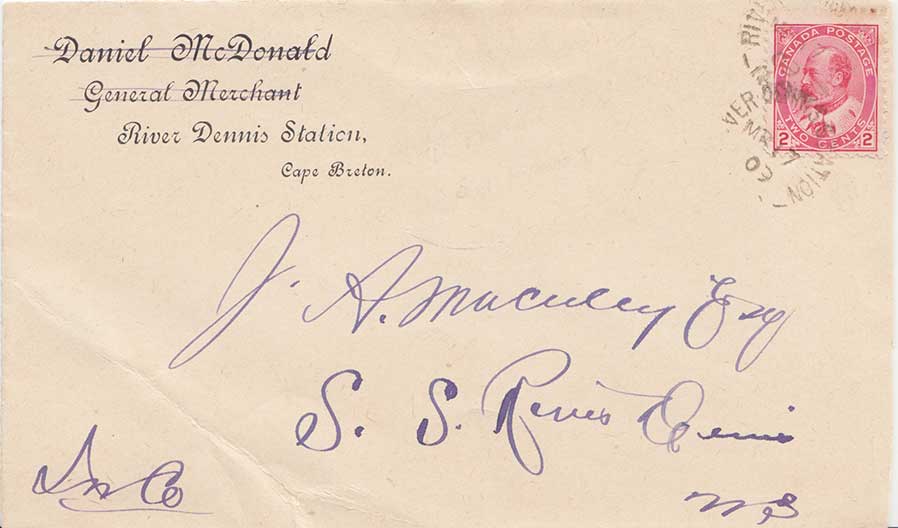 Daniel McDonald
General Merchant
River Dennis Station,
Cape Breton.
CANADA POSTAGE
2 TWO CENTS 2
VER DENNIS STATION
MR 17
09
J. A. Esq
S. S. River Denis
N.S